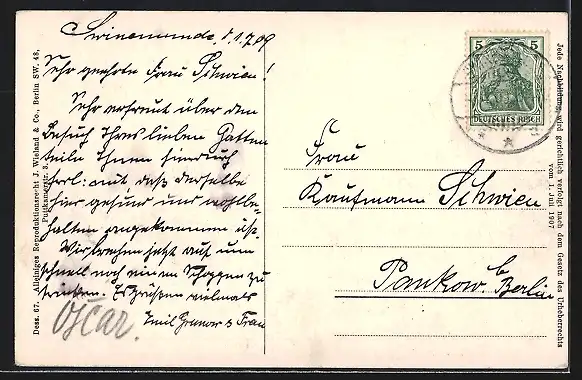 Swinemünde, d. 1.7.09
Sehr geehrte Frau Schwien!
Sehr erfreut über den
Besuch Ihres lieben Gatten
teile Ihnen hierdurch
herzl. mit, daß derselbe
hier gesund und wohlbe-
halten angekommen ist.
Wir brechen jetzt auf um
schnell noch einen Schoppen zu
trinken. Es grüßen vielmals
Emil & Frau
Oscar.
Dess. 67. Alleiniges Reproduktionsrecht J. Wieland & Co., Berlin SW. 48,
Puttkamerstr. 3.
5 5
DEUTSCHES REICH
Frau
Kaufmann Schwien
Pankow b/
Berlin
Jede Nachbildung wird gerichtlich verfolgt nach dem Gesetz des Urheberrechts
vom 1. Juli 1907